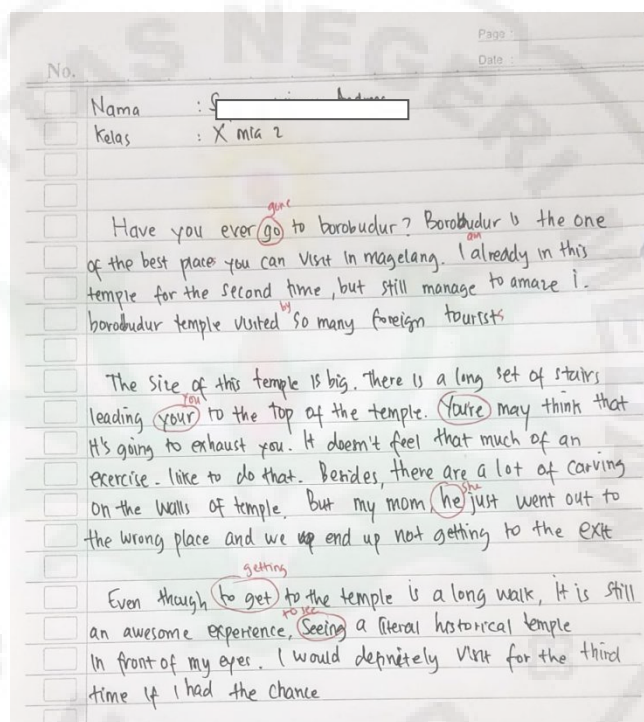 Page :
Date :
No.
Nama : S
Kelas : X mia 2
gone
Have you ever go to borobudur? Borobudur is the one
am
of the best places you can visit in magelang. I already in this
temple for the second time, but still manage to amaze i.
by
borobudur temple visited so many foreign tourists
The size of this temple is big. There is a long set of stairs
you
leading your to the top of the temple. Youre may think that
it's going to exhaust you. It doesn't feel that much of an
exercise. I like to do that. Besides, there are a lot of carving
she
on the walls of temple. But my mom, he just went out to
the wrong place and we end up not getting to the exit
getting
Even though to get to the temple is a long walk, it is still
to see
an awesome experience, Seeing a literal historical temple
in front of my eyes. I would definitely visit for the third
time if I had the chance